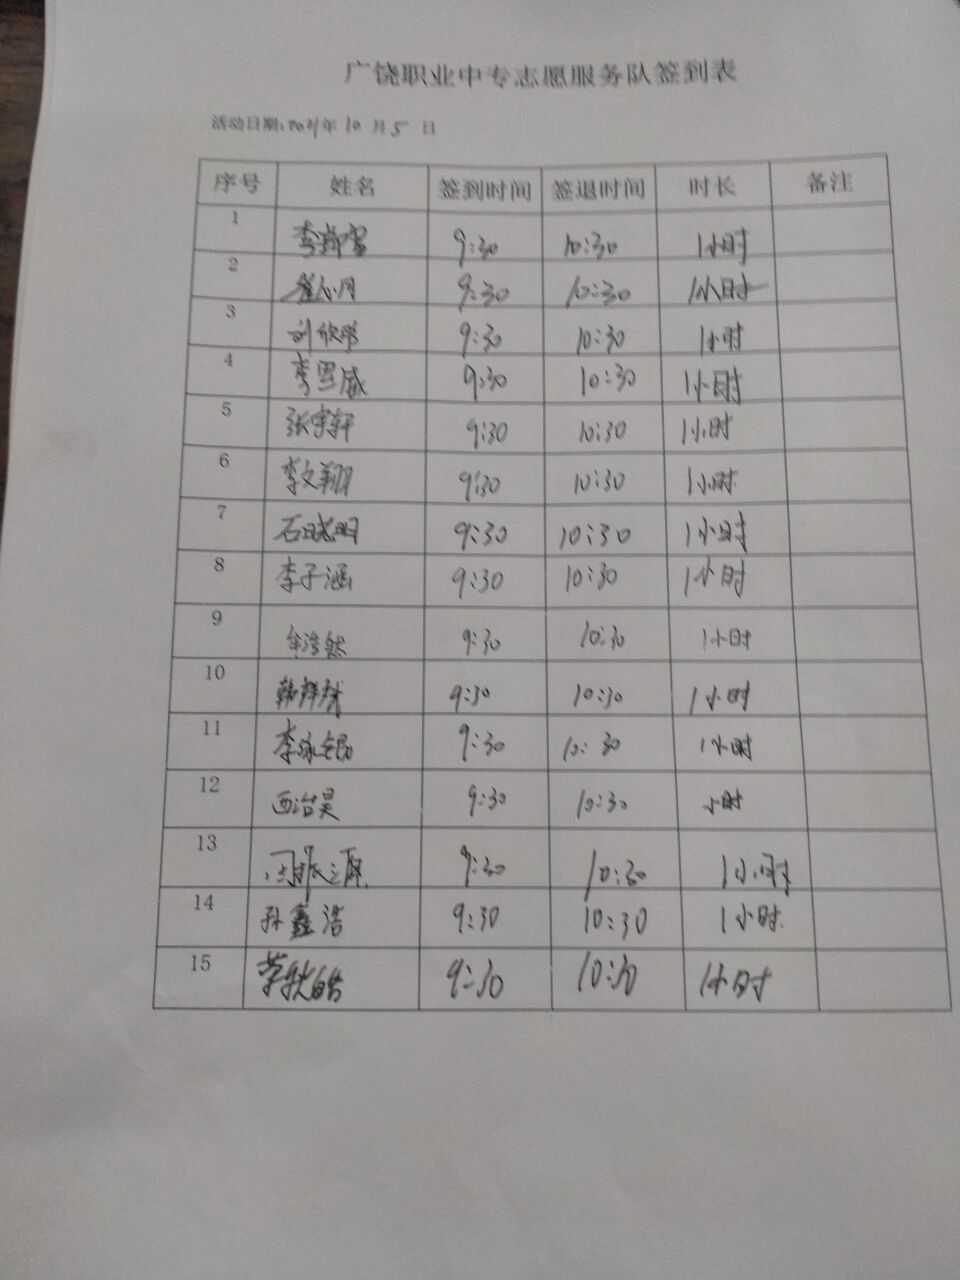 广饶职业中专志愿服务队签到表
活动日期:2021年 10 月 5 日
序号 姓名 签到时间 签退时间 时长 备注
1 李 9:30 10:30 1小时
2 崔心月 9:30 10:30 1小时
3 刘欣彤 9:30 10:30 1小时
4 李思威 9:30 10:30 1小时
5 张宇轩 9:30 10:30 1小时
6 李文翔 9:30 10:30 1小时
7 石晓明 9:30 10:30 1小时
8 李子涵 9:30 10:30 1小时
9 浩然 9:30 10:30 1小时
10 韩祥 9:30 10:30 1小时
11 李 9:30 10:30 1小时
12 9:30 10:30 小时
13 9:30 10:30 1小时
14 孙鑫浩 9:30 10:30 1小时
15 9:30 10:30 1小时